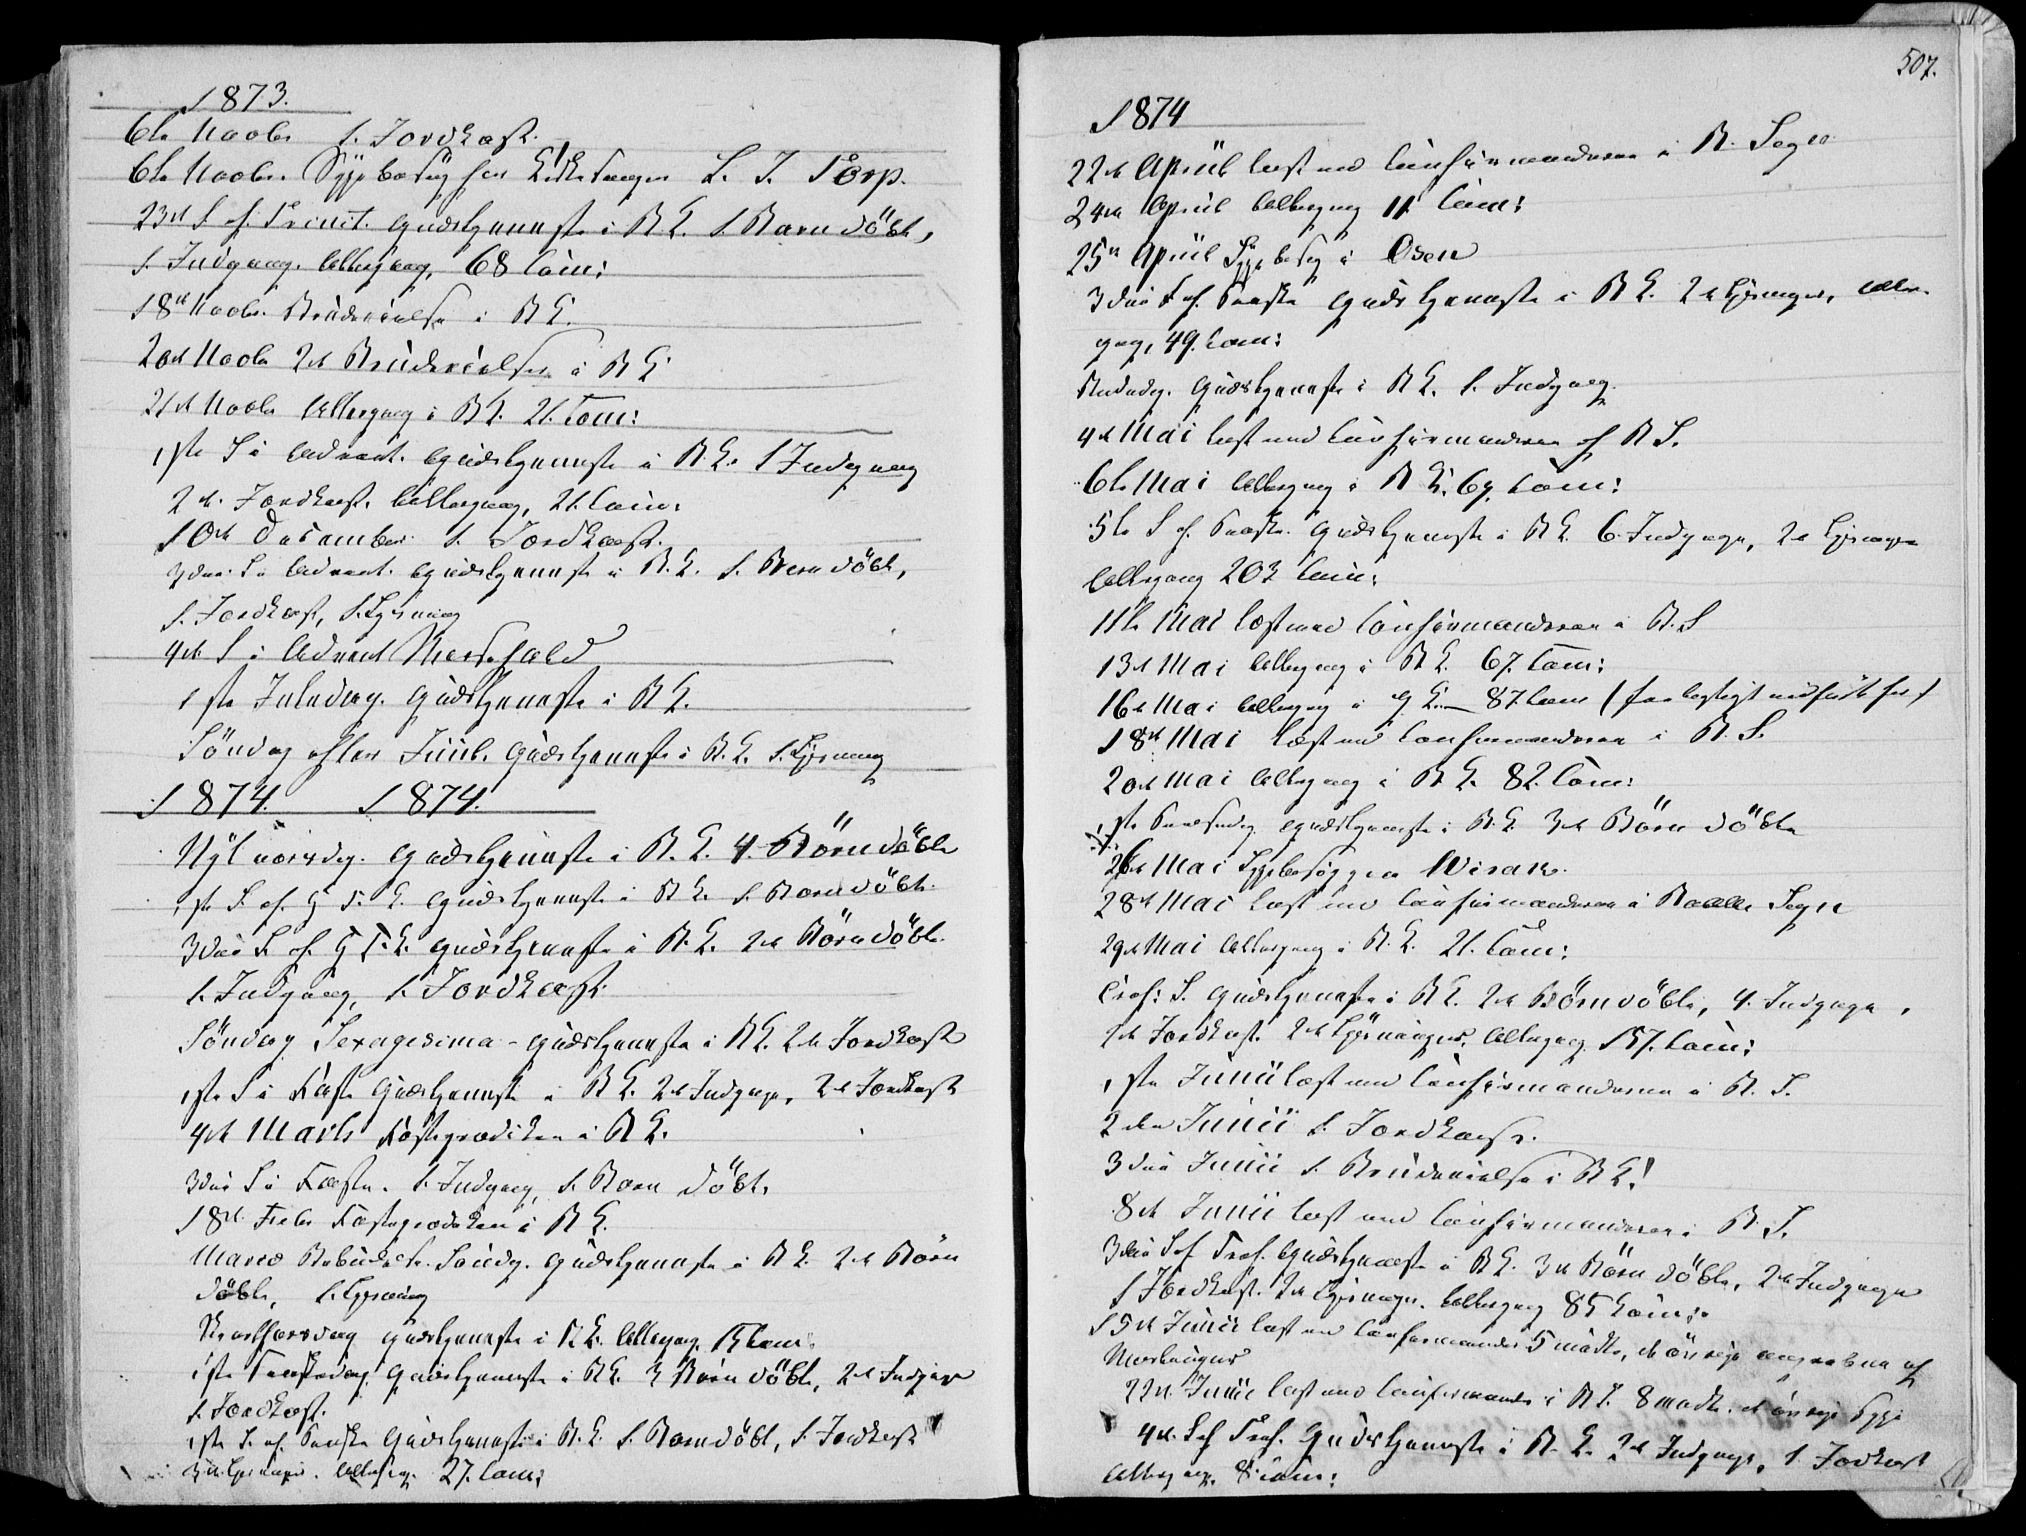 1873.
6te Novbr 1. Jordkast.
6te Novbr. Sygebesøg hos Kirkesanger L. J. Torp.
23de S. ef. Trinit. Gudstjeneste i B.K. 1 Barn döbt,
1. Indgang. Altergang, 68 Com:
18de Novbr. Brudevielse i B K.
20de Novbr 2de Brudevielser i B K
21de Novbr Altergang i B K. 21. Com:
1ste S i Advent. Gudstjeneste i B.K. 1 Indgang
2de Jordkast. Altergang, 21. Com:
10de December 1. Jordkast.
3die S i Advent. Gudstjeneste i B.K. 1. Barn döbt,
1. Jordkast, 1. Lysning
4de S i Advent Messefald
1ste Juledag. Gudstjeneste i B K.
Söndag efter Juul. Gudstjeneste i B.K. 1. Lysning
1874. 1874.
Nytaarsdag. Gudstjeneste i B.K. 4. Börn döbte
1ste S. ef. H. 3. K. Gudstjeneste i B K. 1. Barn döbt.
3die S. ef. H. 3. K. Gudstjeneste i B.K. 2de Börn döbte.
1. Indgang, 1. Jordkast.
Söndag Sexagesima - Gudstjeneste i B K. 2de Jordkast
1ste S i Faste Gudstjeneste i B K. 2de Indgange, 2de Jordkast
4de Marts Fasteprædiken i B K.
3die S i Faste. 1. Indgang, 1. Barn döbt.
18de Febr Fasteprædiken i B K.
Mariæ Bebudelses Søndag. Gudstjeneste i B K. 2de Börn
döbte, 1. Lysning
Skjærthorsdag Gudstjeneste i B K. Altergang. Com:
1ste Paaskedag. Gudstjeneste i B K. 3 Börn döbte, 2de Indgange
1. Jordkast.
1ste S. ef. Paaske Gudstjeneste i B.K. 1. Barn döbt, 1. Jordkast
3de Lysninger. Altergang. 27. Com:
507.
1874
22de April læst med Confirmanderne i B. Sogn
24de April Altergang 11. Com:
25de April Sygebesøg i Osen
3die S ef. Paaske Gudstjeneste i B K. 2de Lysninger, Alter-
gang, 49. Com:
Bededag. Gudstjeneste i B K. 1. Indgang.
4de Mai læst med Confirmanderne af B S.
6te Mai Altergang i B K. 67. Com:
5te S ef. Paaske. Gudstjeneste i B K. 6. Indgange, 2de Lysninger
Altergang 203 Com:
11te Mai læst med Confirmanderne i B.S
13de Mai Altergang i B K. 67. Com:
16de Mai Altergang i G K. 87. Com
18de Mai læst med Confirmanderne i B. S.
20de Mai Altergang i B K. 82. Com:
1ste Pindsedag Gudstjeneste i B.K. 3de Börn döbte
26de Mai Sygebesög paa
28de Mai læst med Confirmanderne i Sogn
29de Mai Altergang i B.K. 21. Com:
Tref: S. Gudstjeneste i B K. 2de Börn döbte, 4. Indgange,
2de Jordkast. 2de Lysninger. Altergang 157. Com:
1ste Junii læst med Confirmanderne i B. S.
2den Junii 1. Jordkast.
3die Junii 1. Brudevielse i B K!
8de Junii læst med Confirmanderne i B. S.
3die S ef Tref. Gudstjeneste i B K. 3de Börn döbte, 2de Indgange
1 Jordkast. 2de Lysninger. Altergang 85 Com:
15de Junii læst med Confirmander 5 mödte, de övrige angrebne af
Meslinger
22de Junii læst med Confirmander i B S. 8 mödte. de övrige syge
4de S ef Tref. Gudstjeneste i B. K. 2de Indgange, 1 Jordkast
Altergang. 8 Com: